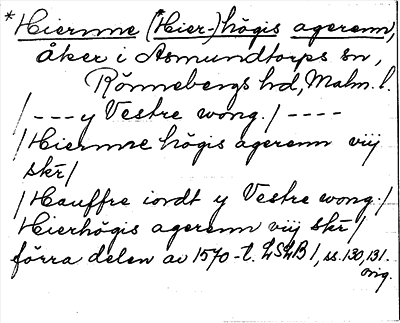 *Hiernne (Hier-)högis agerenn,
åker i Asmundtorps sn,
Rönnebergs hd, Malm. l.
/--- y Vestre wong./ ----
/Hiernne högis agerenn vij
skr/
/Hauffre iordt y Vestre wong./
Hierhögis agerenn vij skr/
förra delen av 1570-t. LSLB 1, ss. 130, 131.
orig.